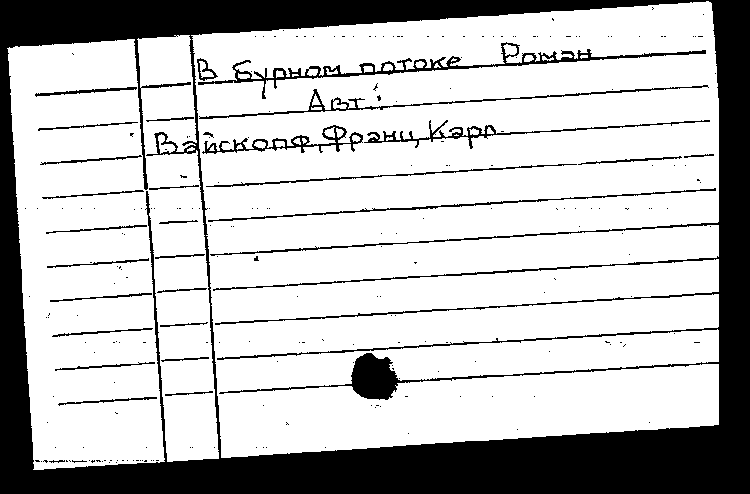 В бурном потоке Роман
Авт.:
Вайскопф, Франц, Карл